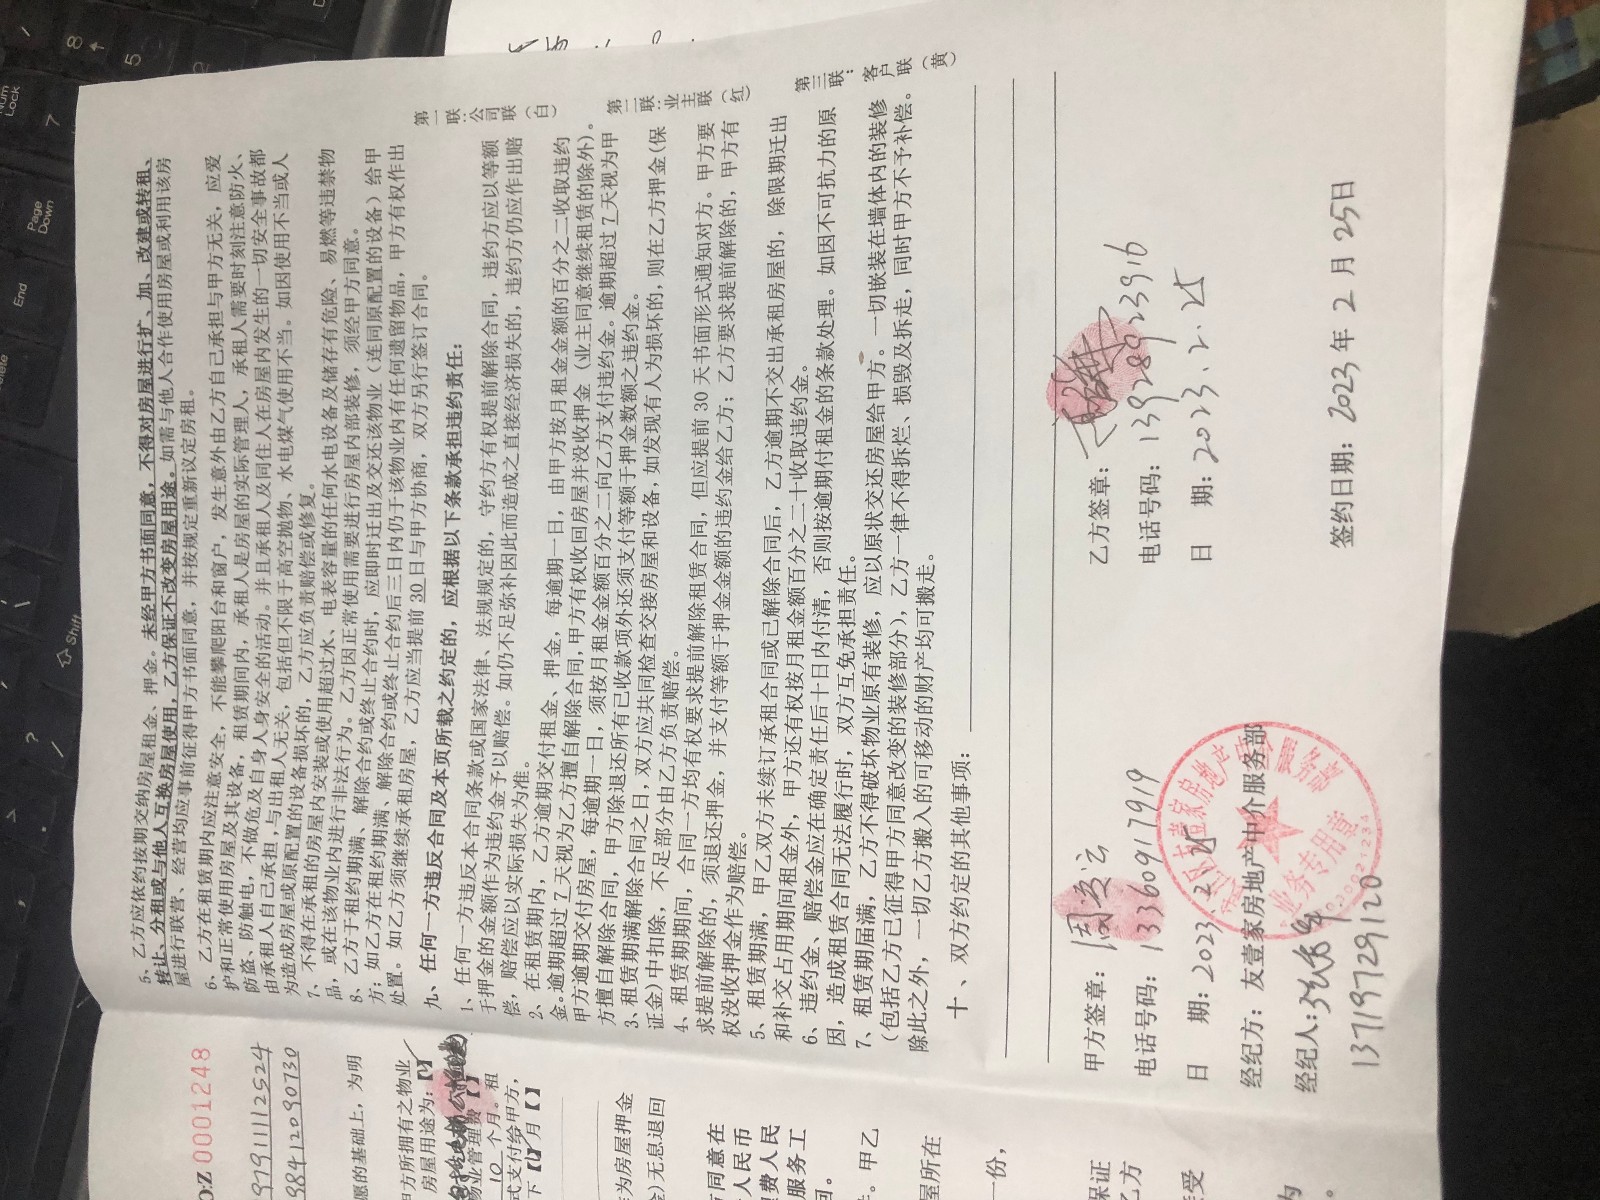 5、乙方应依约按期交纳房屋租金、押金。未经甲方书面同意，不得对房屋进行扩、加、改建或转租、
转让、分租或与他人互换房屋使用，乙方保证不改变房屋用途。如需与他人合作使用房屋或利用该房
屋进行联营、经营均应事前征得甲方书面同意，并按规定重新议定房租。
6、乙方在租赁期内应注意安全，不能攀爬阳台和窗户，发生意外由乙方自己承担与甲方无关，应爱
护和正常使用房屋及其设备，租赁期间内，承租人是房屋的实际管理人，承租人需要时刻注意防火、
防盗、防触电，不做危及自身人身安全的活动。并且承租人及同住人在房屋内发生的一切安全事故都
由承租人自己承担，与出租人无关，包括但不限于高空抛物、水电煤气使用不当。如因使用不当或人
为造成房屋或原配置的设备损坏的，乙方应负责赔偿或修复。
7、不得在承租的房屋内安装或使用超过水、电表容量的任何水电设备及储存有危险、易燃等违禁物
品，或在该物业内进行非法行为。乙方因正常使用需要进行房屋内部装修，须经甲方同意。
8、乙方于租约期满、解除合约或终止合约时，应即时迁出及交还该物业（连同原配置的设备）给甲
方；如乙方在租约期满、解除合约或终止合约后三日内仍于该物业内有任何遗留物品，甲方有权作出
处置。如乙方须继续承租房屋，乙方应当提前 30 日与甲方协商，双方另行签订合同。
九、任何一方违反合同及本页所载之约定的，应根据以下条款承担违约责任：
1、任何一方违反本合同条款或国家法律、法规规定的，守约方有权提前解除合同，违约方应以等额
于押金的金额作为违约金予以赔偿。如仍不足弥补因此而造成之直接经济损失的，违约方仍应作出赔
偿，赔偿应以实际损失为准。
2、在租赁期内，乙方逾期交付租金、押金，每逾期一日，由甲方按月租金金额的百分之二收取违约
金。逾期超过 7 天视为乙方擅自解除合同，甲方有权收回房屋并没收押金（业主同意继续租赁的除外）。
甲方逾期交付房屋，每逾期一日，须按月租金金额百分之二向乙方支付违约金。逾期超过 7 天视为甲
方擅自解除合同，甲方除退还所有已收款项外还须支付等额于押金数额之违约金。
3、租赁期满解除合同之日，双方应共同检查交接房屋和设备，如发现有人为损坏的，则在乙方押金(保
证金)中扣除，不足部分由乙方负责赔偿。
4、租赁期期间，合同一方均有权要求提前解除租赁合同，但应提前 30 天书面形式通知对方。甲方要
求提前解除的，须退还押金，并支付等额于押金金额的违约金给乙方；乙方要求提前解除的，甲方有
权没收押金作为赔偿。
5、租赁期满，甲乙双方未续订承租合同或已解除合同后，乙方逾期不交出承租房屋的，除限期迁出
和补交占用期间租金外，甲方还有权按月租金额百分之二十收取违约金。
6、违约金、赔偿金应在确定责任后十日内付清，否则按逾期付租金的条款处理。如因不可抗力的原
因，造成租赁合同无法履行时，双方互免承担责任。
7、租赁期届满，乙方不得破坏物业原有装修，应以原状交还房屋给甲方。一切嵌装在墙体内的装修
（包括乙方已征得甲方同意改变的装修部分），乙方一律不得拆烂、损毁及拆走，同时甲方不予补偿。
除此之外，一切乙方搬入的可移动的财产均可搬走。
十、双方约定的其他事项：
第一联：公司联（白）
第二联：业主联（红）
第三联：客户联（黄）
甲方签章：周凌云
电话号码：13360917919
日 期：2023.2.25
经纪方：友壹家房地产中介服务部
经纪人：
13719729120
乙方签章：
电话号码：13928923916
日 期：2023.2.25
签约日期：2023年 2 月 25日
业务专用章
O:Z 0001248
97911112524
98412090730
愿的基础上，为明
甲方所拥有之物业
房屋用途为：【
物业管理费【
10 个月。租
式支付给甲方，
下【 】月【 】
作为房屋押金
金)无息退回
方同意在
人民币
费人民
服务工
回。
。甲乙
屋所在
一份，
保证
乙方
接受
为
Num Lock
Page Down
End
Delete
Shift
8
5
2
7